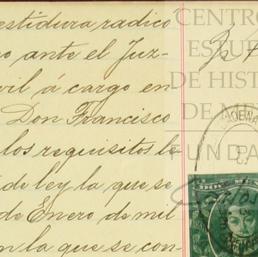 estidura radico
o ante el Juz-
vil á cargo en
Don Francisco
los requisitos le
de ley la que se
de Enero de mil
n la que se con-
CENTRO
ESTU
DE HIST
DE M
UNDA